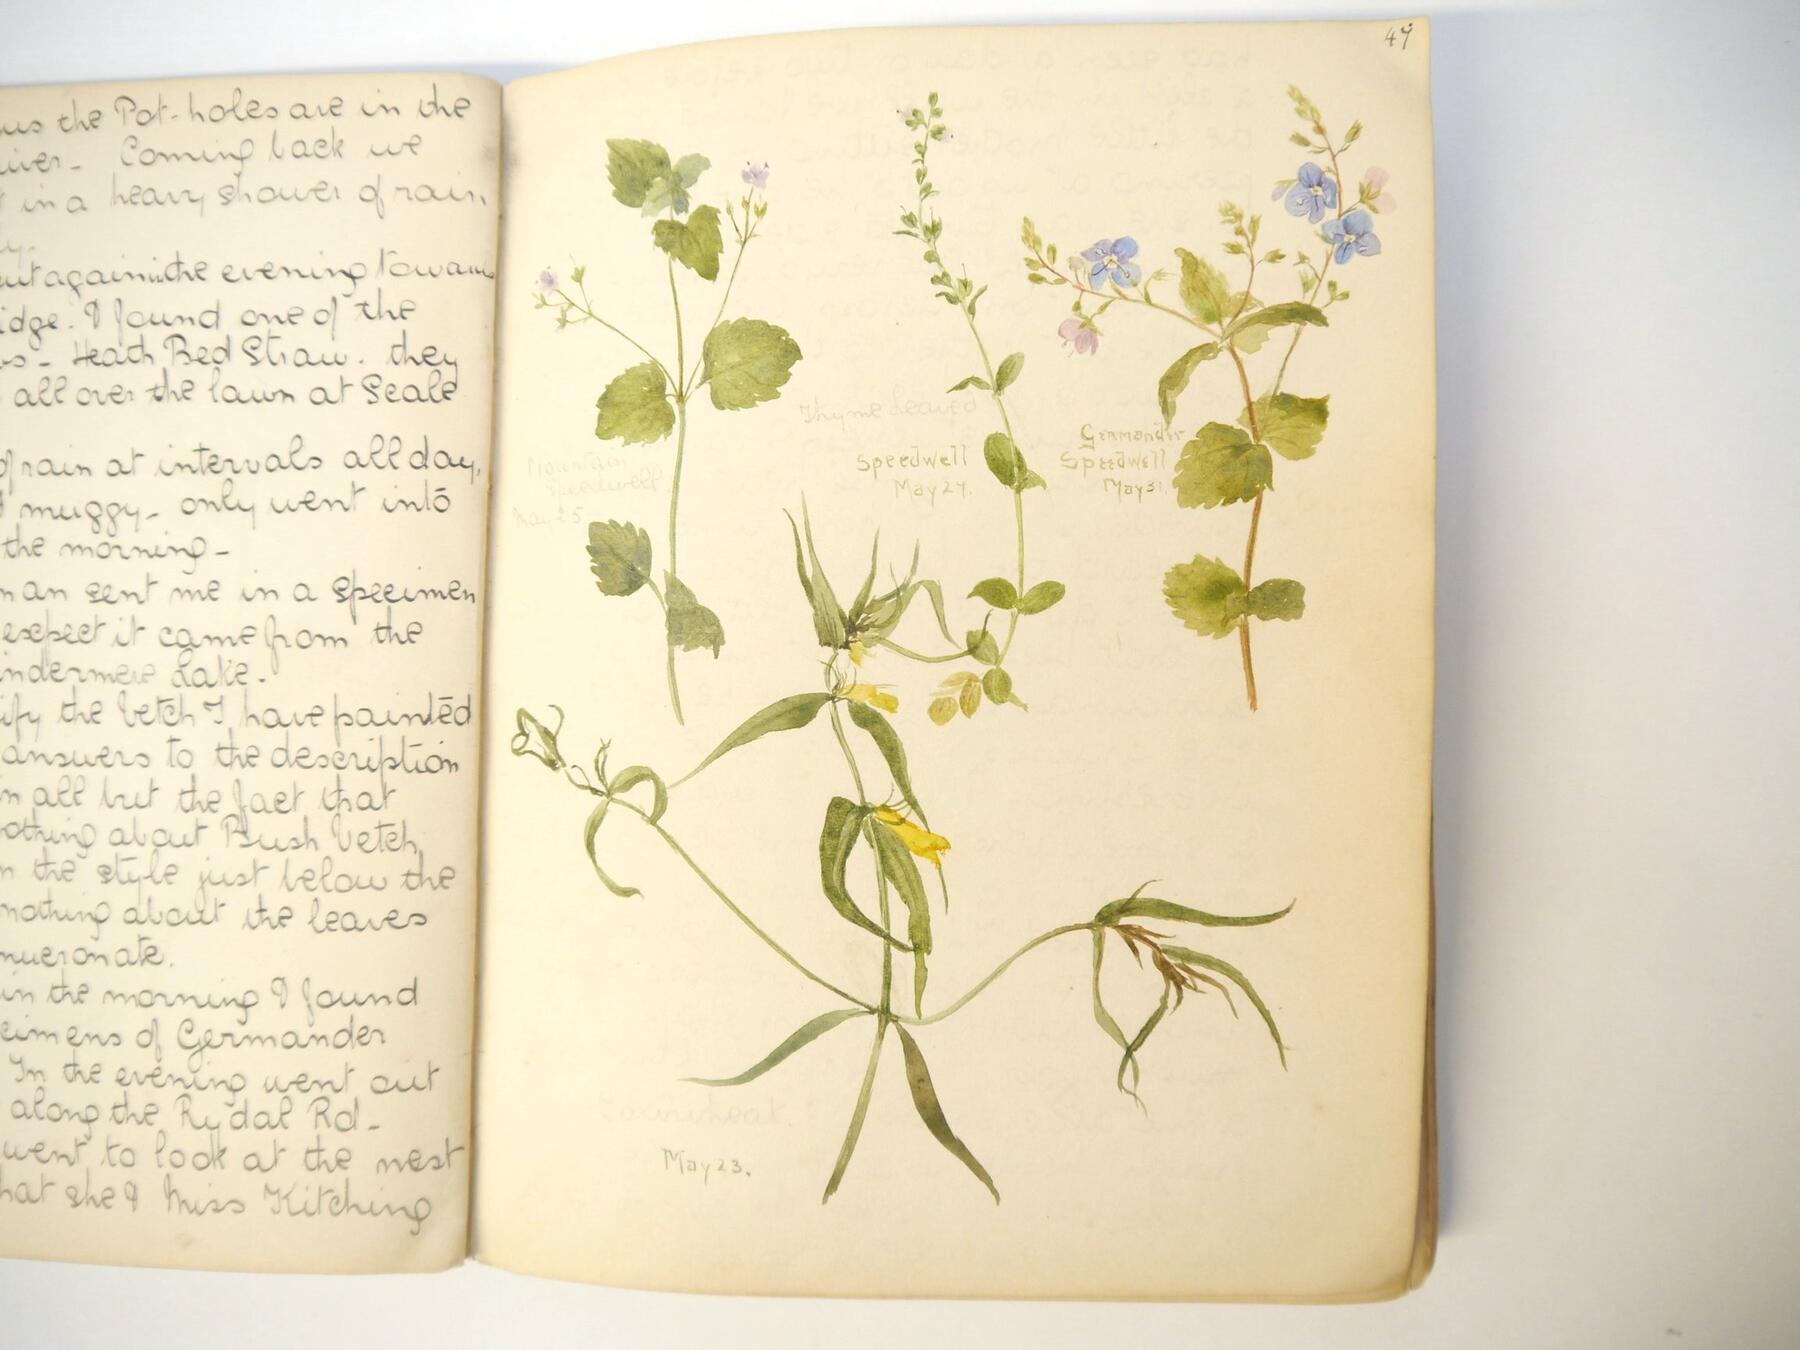 the Pot-holes are in the
Coming back we
in a heavy shower of rain
again in the evening towards
I found one of the
Heath Bed Straw. they
all over the lawn at Scale
of rain at intervals all day,
muggy - only went into
the morning -
sent me in a specimen
expect it came from the
Lake.
the Vetch I have painted
answers to the description
in all but the fact that
about Bush Vetch,
the style just below the
nothing about the leaves
mucronate.
in the morning I found
of Germander
In the evening went out
along the Rydal Rd -
went to look at the nest
that she & Miss Kitching
47
Mountain
Speedwell
May 25
Thyme Leaved
Speedwell
May 27.
Germander
Speedwell
May 31.
May 23.